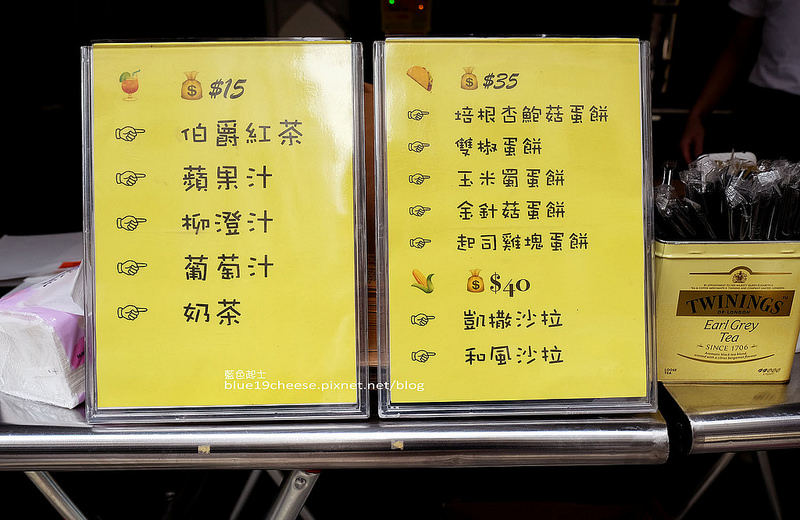 $15
伯爵紅茶
蘋果汁
柳澄汁
葡萄汁
奶茶
藍色起士
blue19cheese.pixnet.net/blog
$35
培根杏鮑菇蛋餅
雙椒蛋餅
玉米蜀蛋餅
金針菇蛋餅
起司雞塊蛋餅
$40
凱撒沙拉
和風沙拉
TWININGS
OF LONDON
Earl Grey
Tea
SINCE 1706
LOOSE
TEA